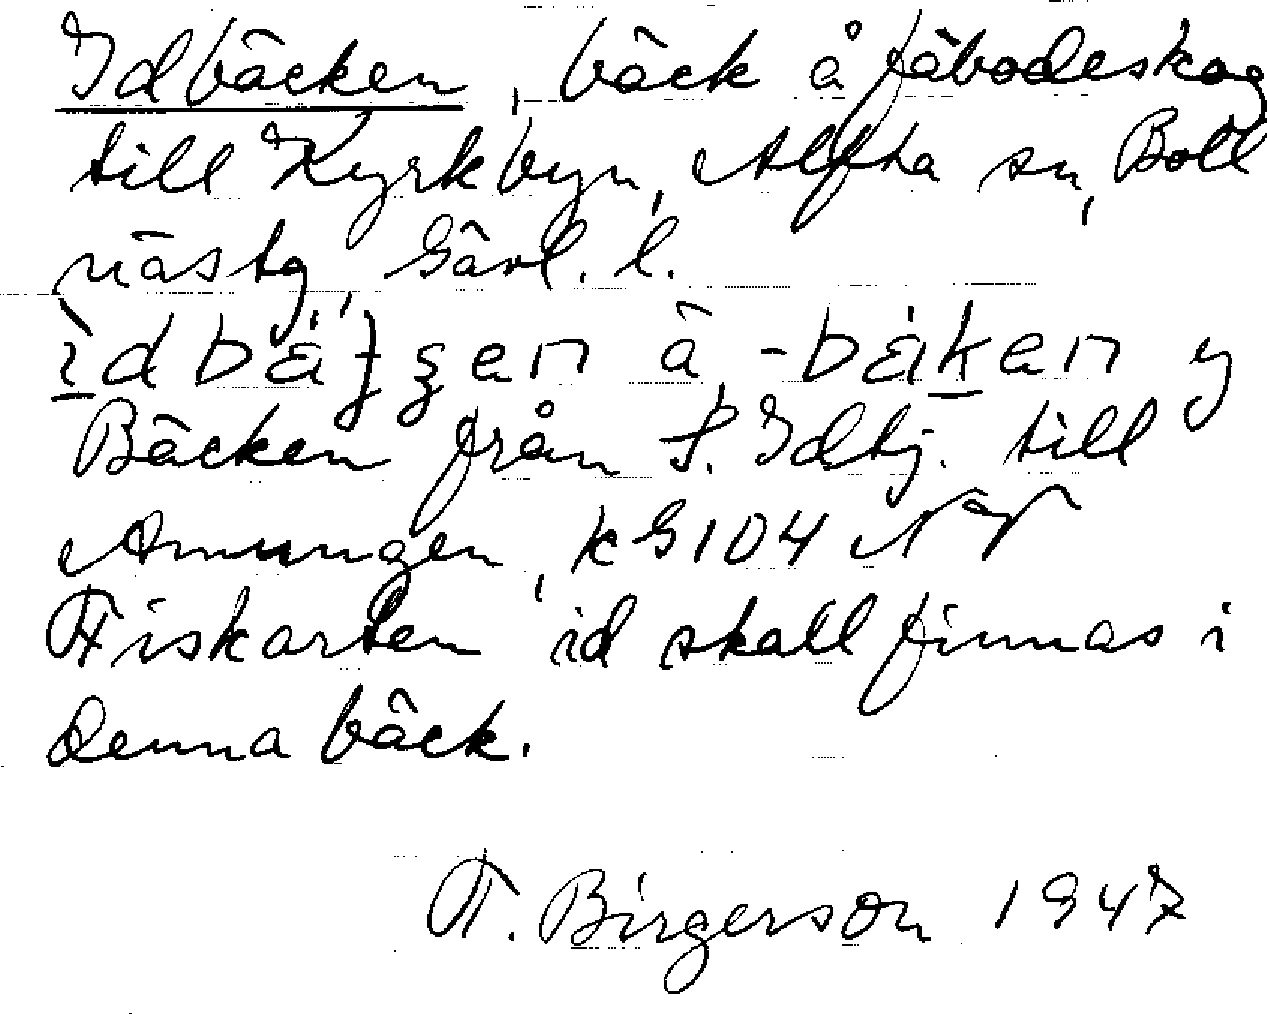 Idbäcken, bäck å fäbodeskog
till Kyrkbyn, Alfta sn, Boll
näs tg, Gävl. l.
å
Bäcken från S. Idtj. till
Amungen, k G 104 NV
Fiskarten id skall finnas i
denna bäck.
F. Birgerson 1947